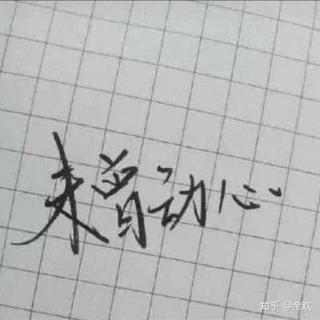 未曾动心
知乎 @余欢